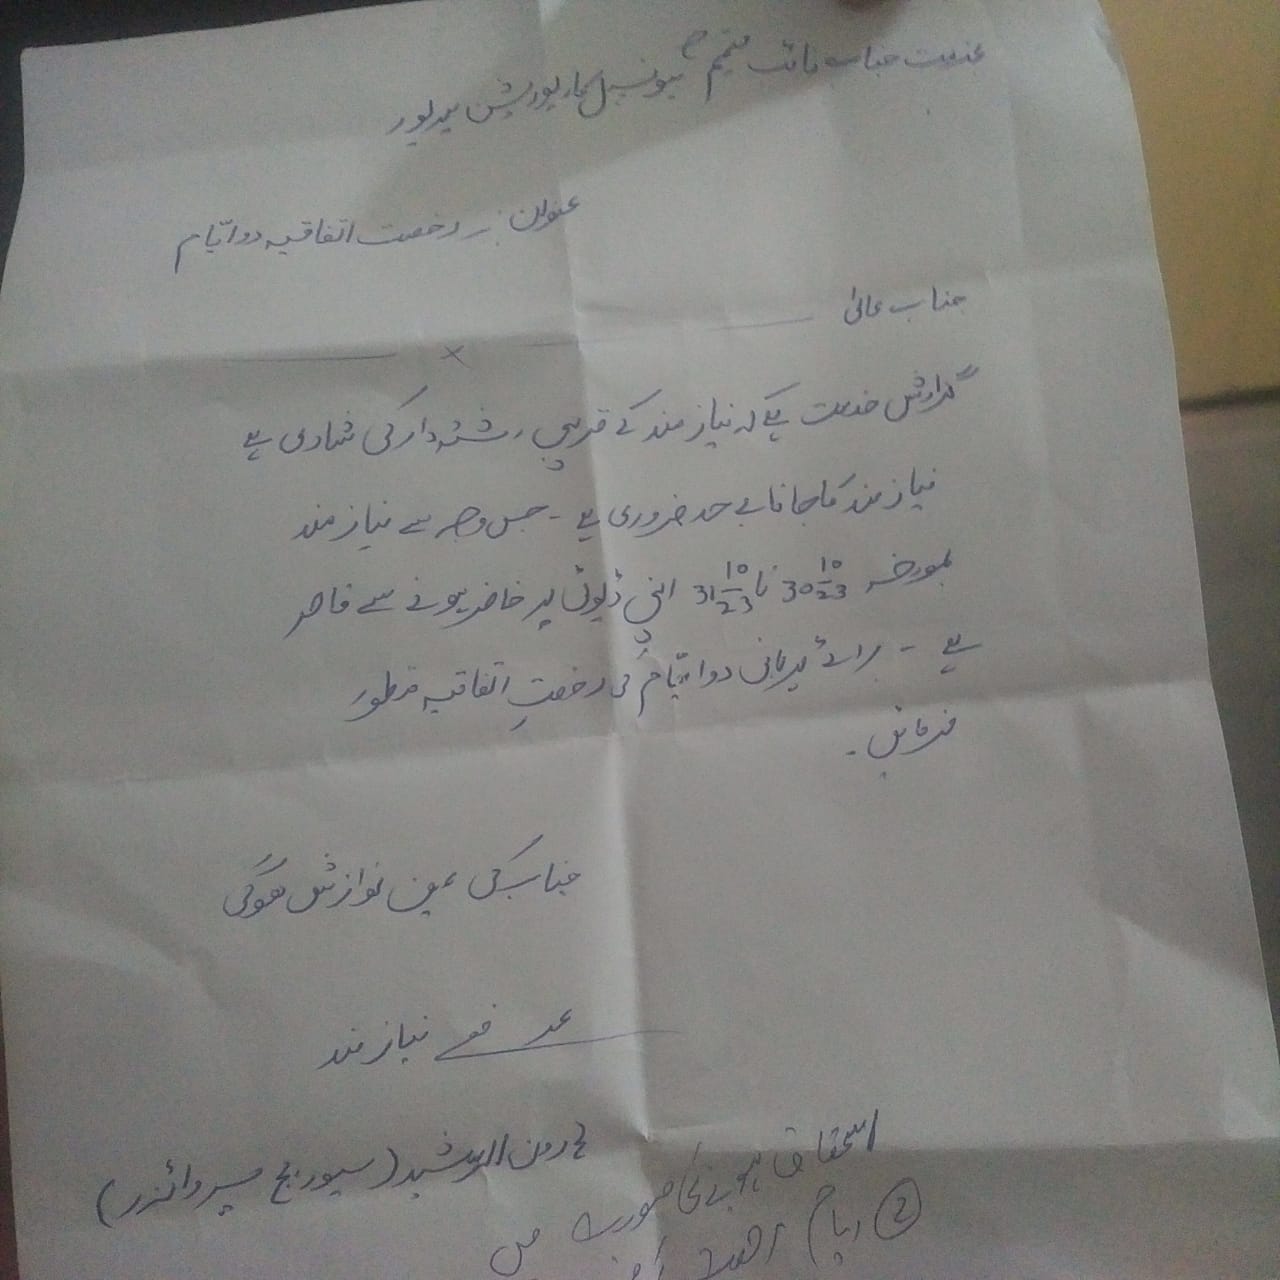 بخدمت جناب نائب مہتمم صاحب
میونسپل کارپوریشن میرپور
عنوان :۔ رخصت اتفاقیہ دو ایّام
جناب عالیٰ
گذارش خدمت ہیکہ نیاز مند کے قریبی رشتہ دار کی شادی ہے
نیاز مند کا جانا بے حد ضروری ہے - جس وجہ سے نیاز مند
بمورخہ 30 10/23 تا 31 10/23 اپنی ڈیوٹی پر حاضر ہونے سے قاصر
ہے - برائے مہربانی دو ایّام کی رخصتِ اتفاقیہ منظور
فرمائیں -
جناب کی عین نوازش ہوگی
عرضے نیاز مند
ہارون الرشید (سیوریج سپروائزر)
استحقاق ہونے کی صورت میں
② ایام رخصت